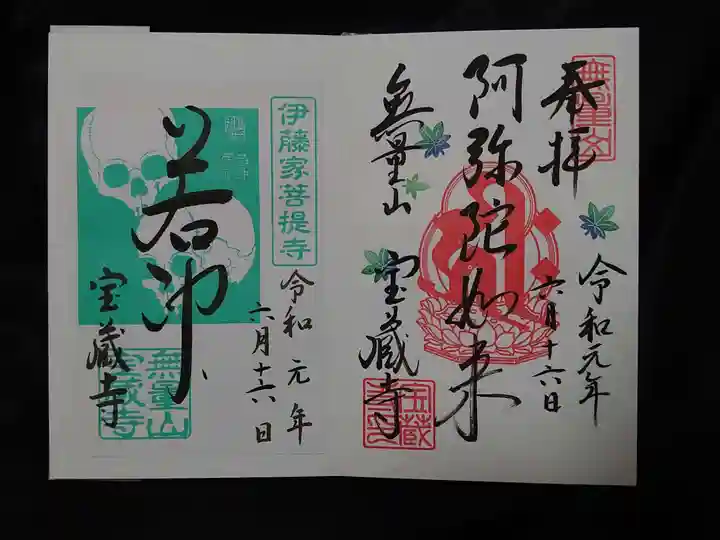 奉拝
無量山
令和元年
六月十六日
阿弥陀如来
無量山
宝蔵寺
宝蔵
伊藤家菩提寺
令和元年
六月十六日
若冲
宝蔵寺
無量山
宝蔵寺